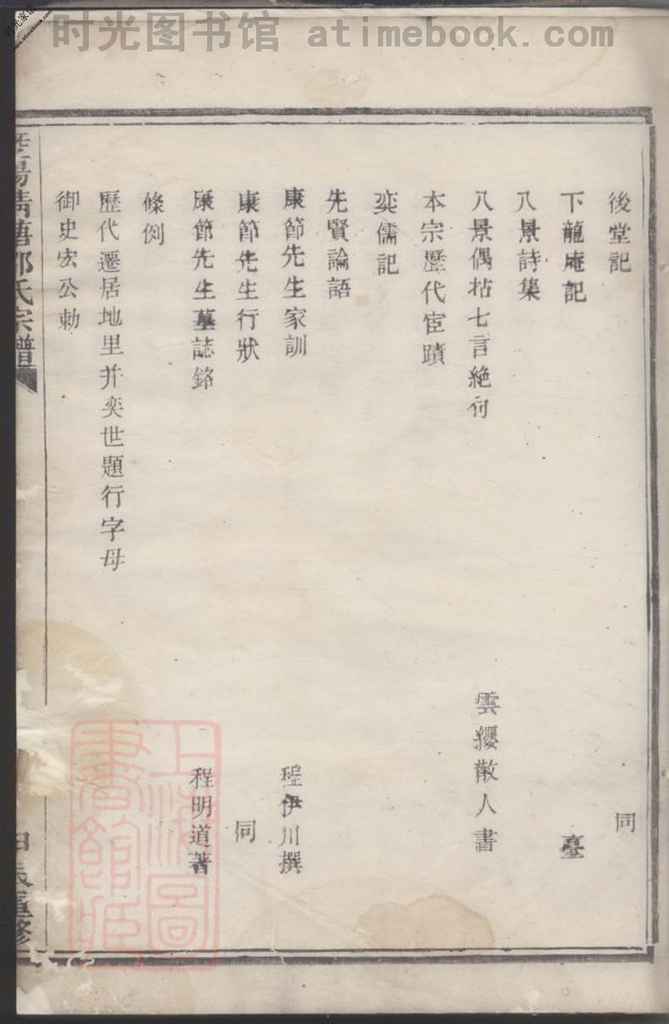 时光图书馆 atimebook.com
後堂記 同
下龍庵記
八景詩集
八景偶拈七言絶句 雲纓散人書
本宗歷代宦蹟
奕儒記
先賢論語
康節先生家訓 程伊川撰
康節先生行狀 同
康節先生墓誌銘 程明道著
條例
歷代遷居地里并奕世題行字母
御史宏公勅
氏宗譜